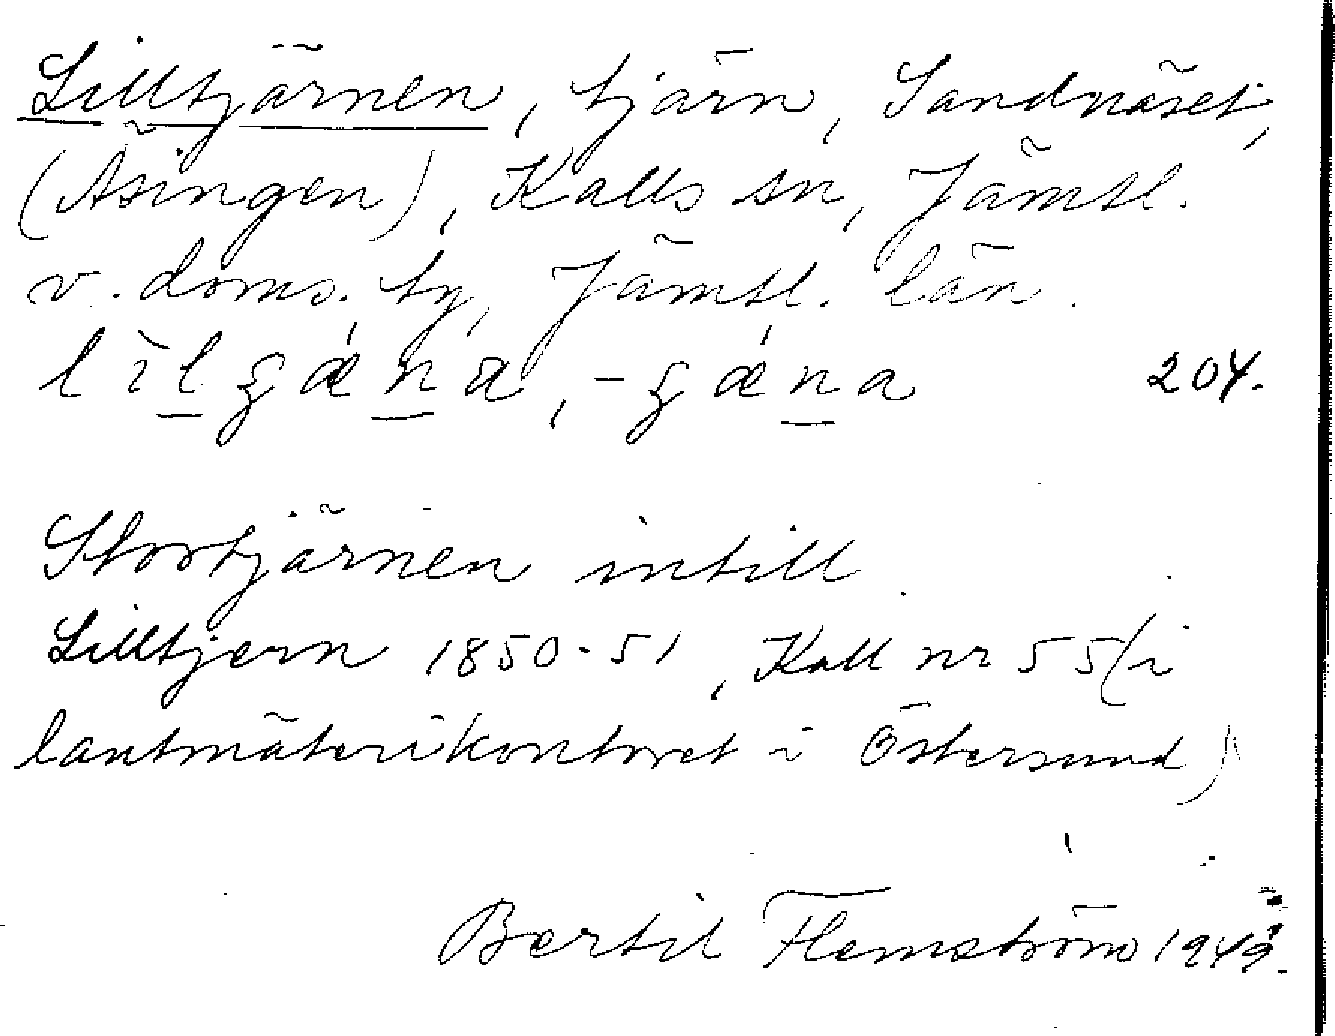 Lilltjärnen, tjärn, Sandnäset,
(Äsingen), Kalls sn, Jämtl.
v. doms. ty, Jämtl. län.
204.
Stortjärnen intill
Lilltjern 1850-51, Kall nr 55 (i
lantmäterikontoret i Östersund)
Bertil Flemström 1949.